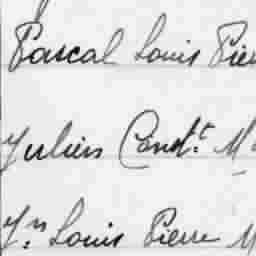 Pascal Louis Pier
Julien Const. M
Jn Louis Pierre M